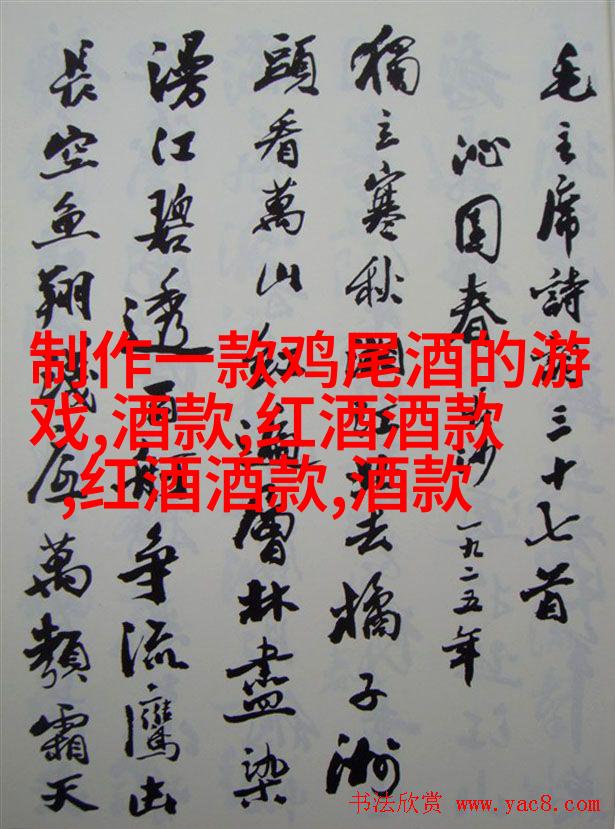 毛主席詩詞三十七首
沁園春 長沙 一九二五年
獨立寒秋湘江北去橘子洲
頭看萬山紅遍層林盡染
漫江碧透百舸爭流鷹击
長空魚翔淺底萬類霜天
制作一款鸡尾酒的游
戏,酒款,红酒酒款
,红酒酒款,酒款
书法欣赏 www.yac8.com